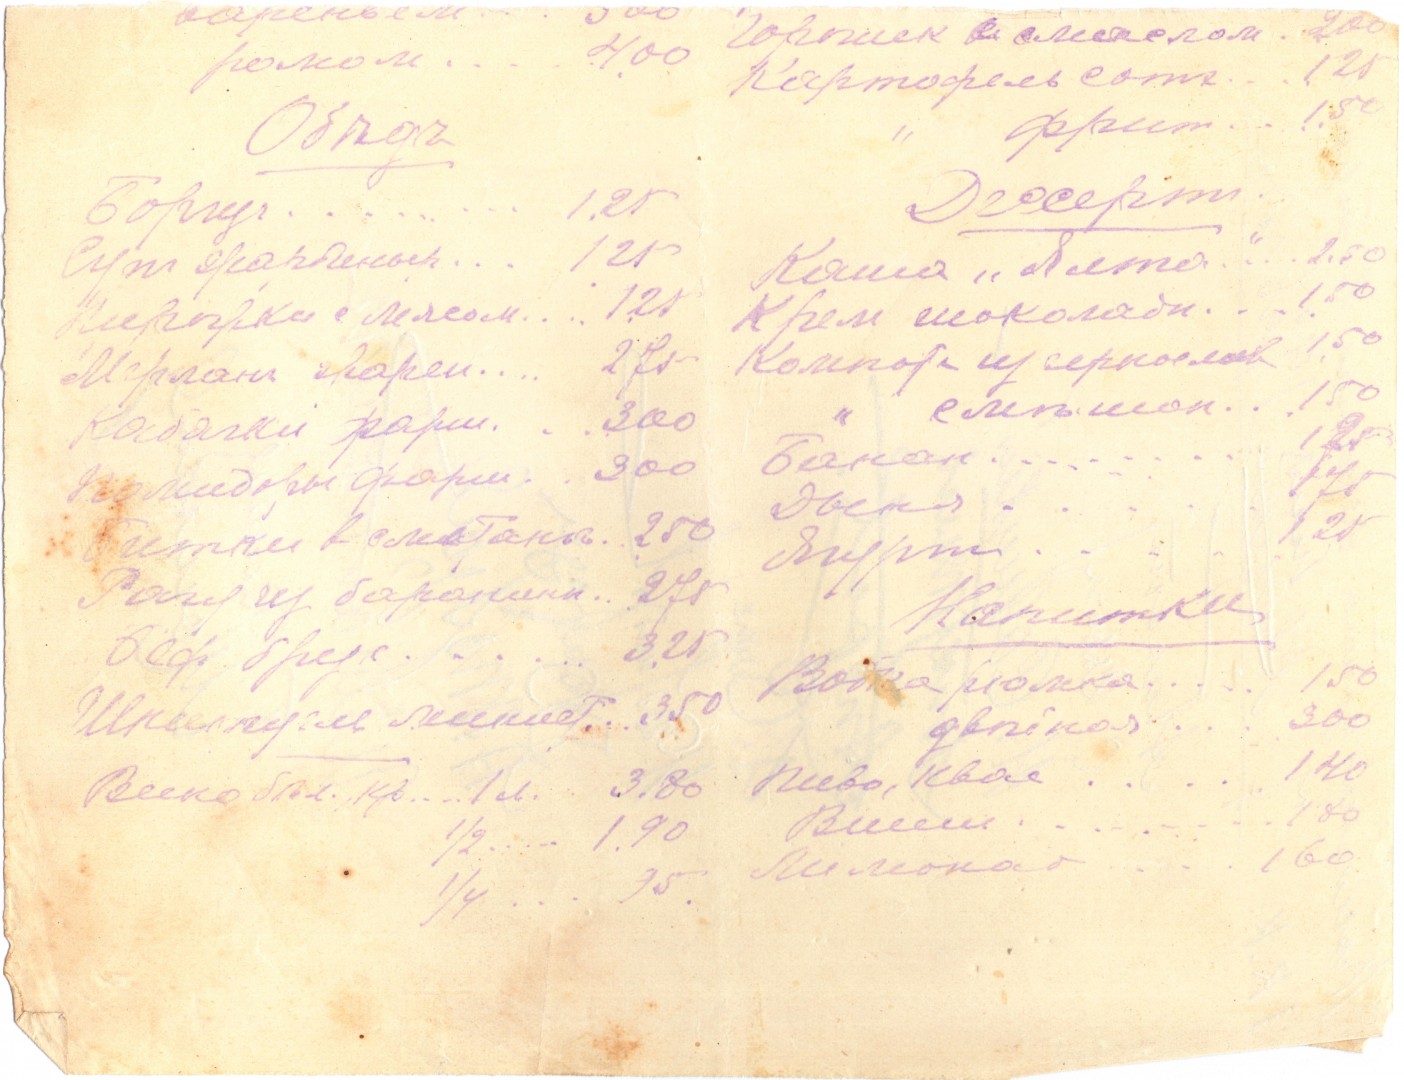 вареньем... 300
ромом.... 4.00
Обѣдъ
Борщъ......... 1.25
Супъ... 1 25
Пирожки с мясом.... 1.25
Мерланъ жарен.... 2 75
Кабачки фарш... 300
Помидоры фарш... 300
Битки в сметанѣ.. 250
Рагу из баранины.. 275
Беф. брезе....... 3.25
Шницель минист... 350
Вино бѣл. кр.... 1 л. 3.80
1/2..... 1.90
1/4.... 95.
Горошек с маслом. 200
Картофель сотэ... 1 25
" фрит... 1.50
Дессерт.
Каша „Ялта"... 2.50
Крем шоколадн.... 1.50
Компотъ из чернослив 1 50
" смѣшан... 150
Банан......... 1 25
Дыня....... 175
Ягурт...... 1 25
Напитки
Водка рюмка..... 150
двойная.... 300
Пиво, квас..... 1 40
Виши......... 1 80
Лимонад.... 1 60